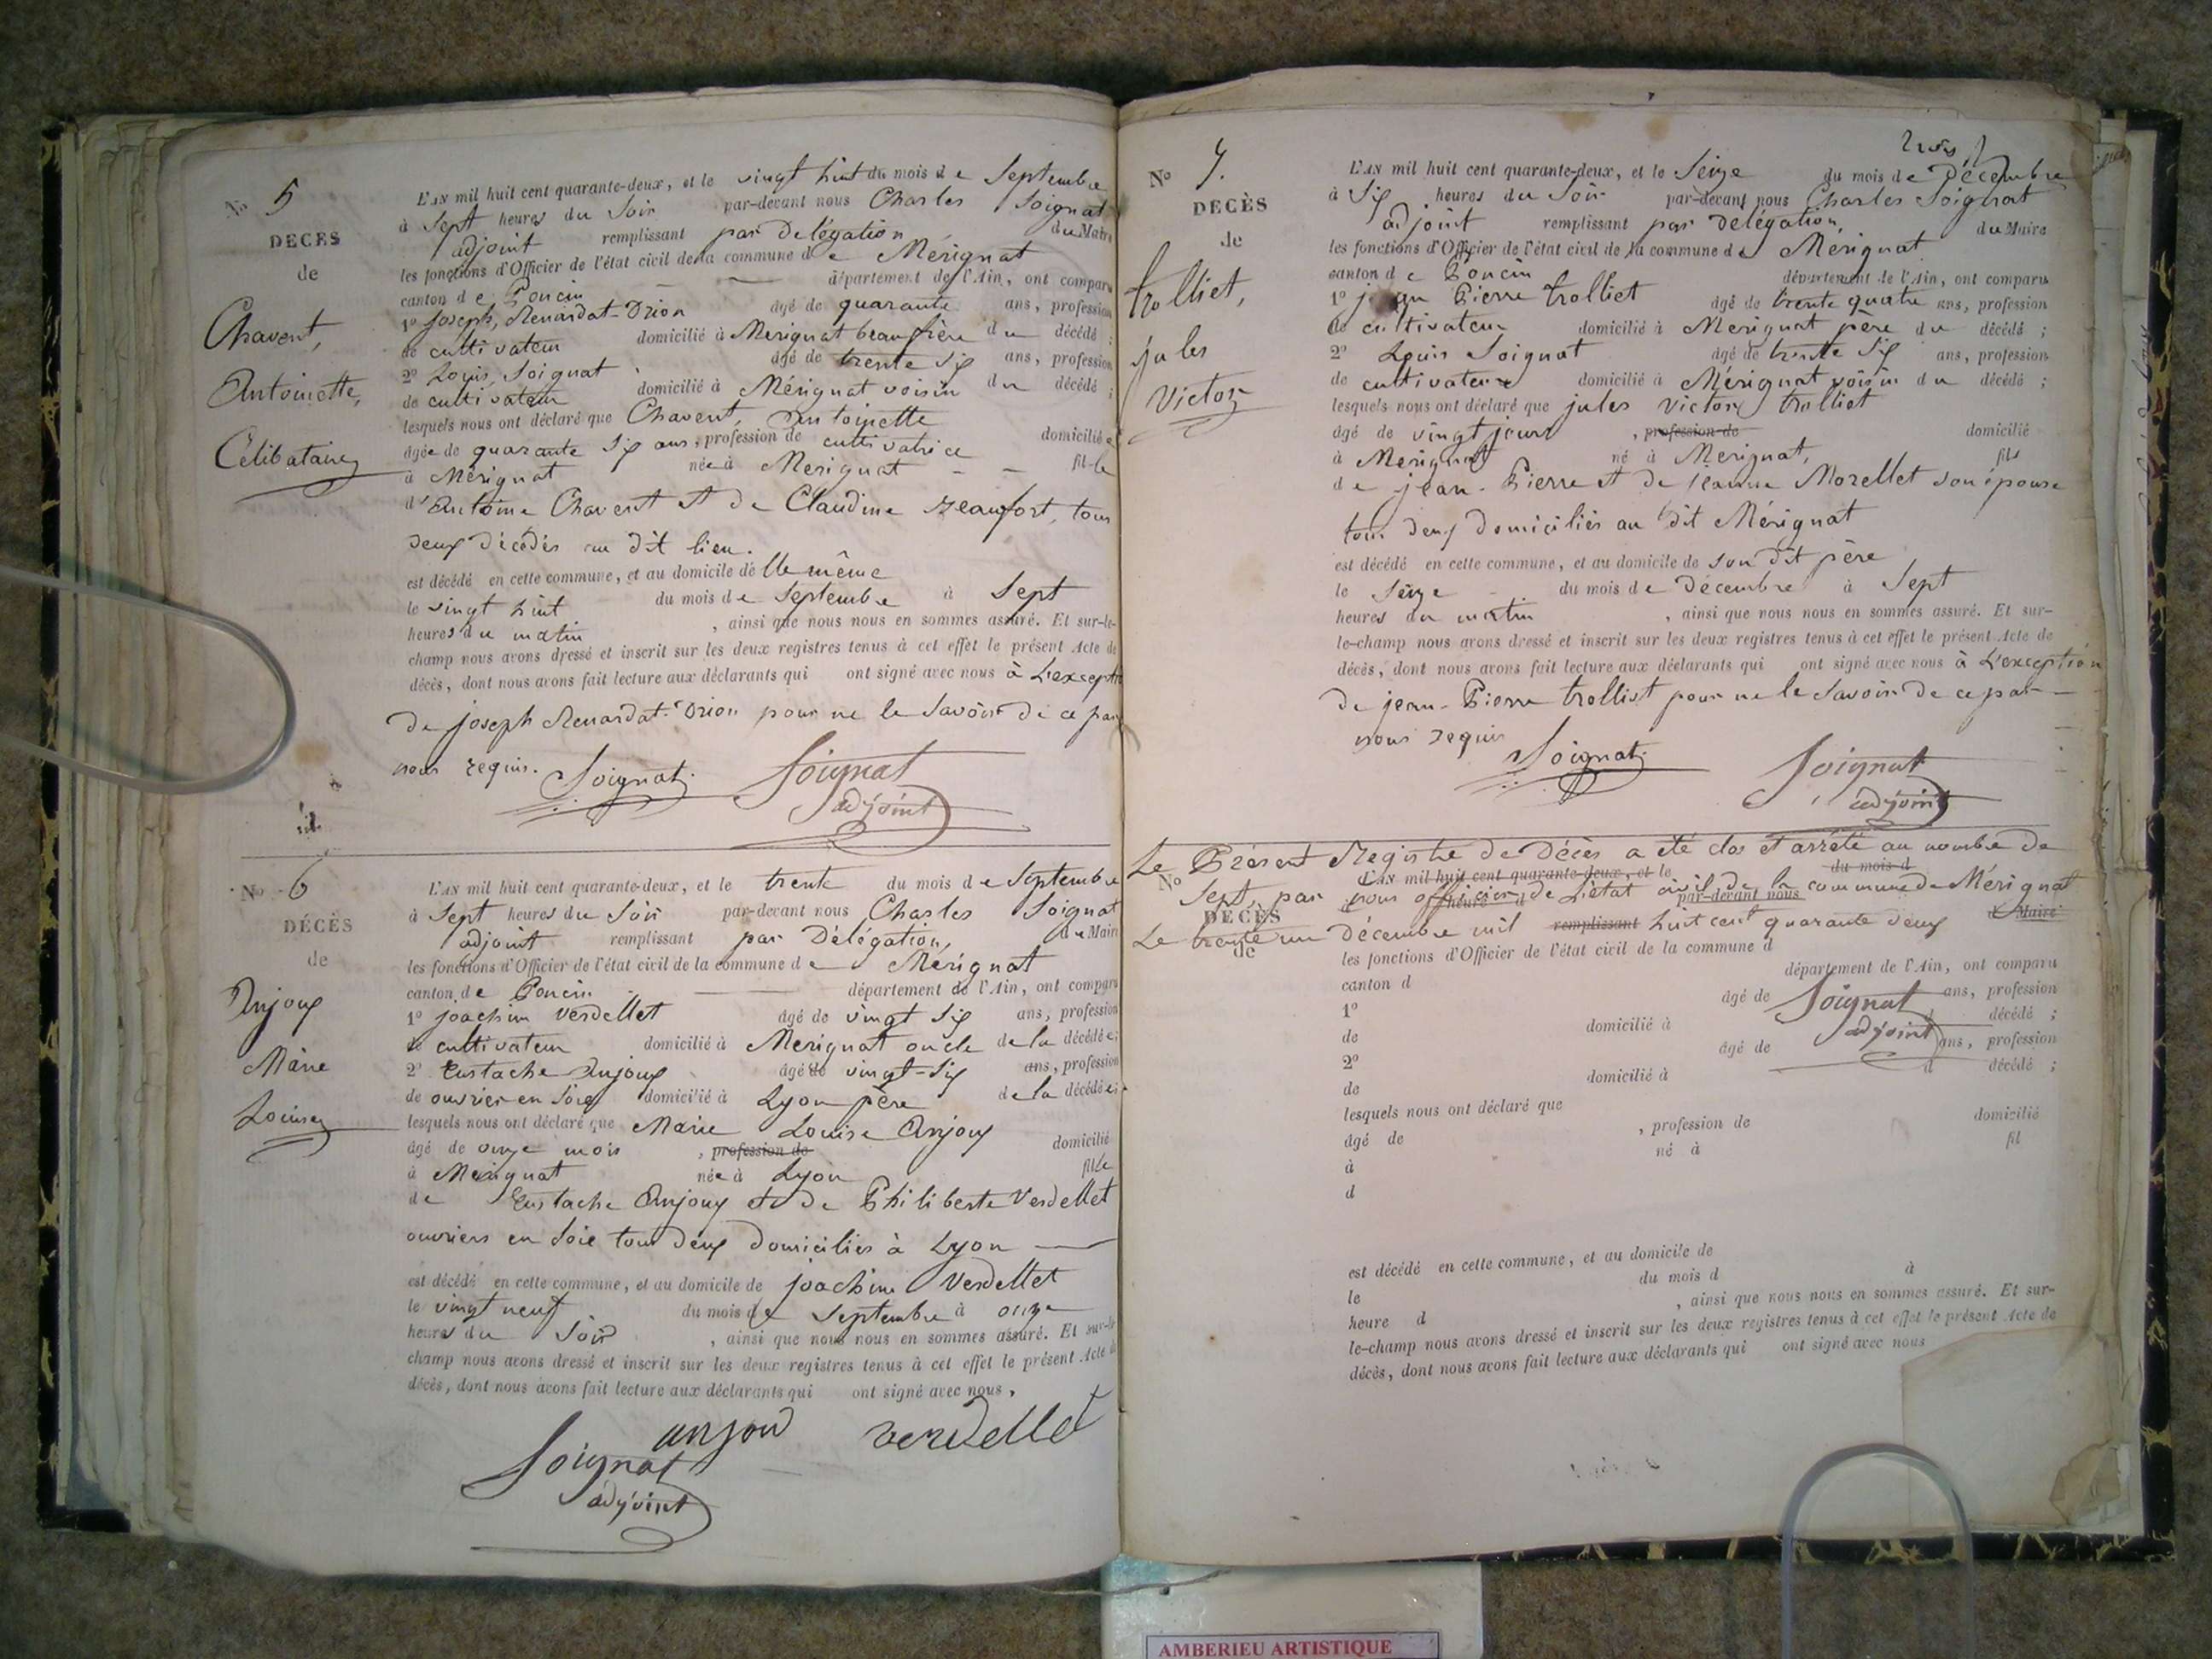 No 5
DÉCÈS
de
Chavent,
Antoinette,
Célibataire
L'AN mil huit cent quarante-deux, et le vingt huit du mois de Septembre
à Sept heures du Soir par-devant nous Charles Soignat
adjoint remplissant par Délégation du Maire
les fonctions d'Officier de l'état civil de la commune de Mérignat
canton de Poncin département de l'Ain, ont comparu
1º Joseph, Renardat-Drion âgé de quarante ans, profession
de cultivateur domicilié à Mérignat beaufrère du décédé ;
2º Louis Soignat âgé de trente Six ans, profession
de cultivateur domicilié à Mérignat voisin du décédé ;
lesquels nous ont déclaré que Chavent, Antoinette
âgée de quarante Six ans, profession de cultivatrice domiciliée
à Mérignat née à Mérignat fille
d'Antoine Chavent et de Claudine Reaufort, tous
deux décédés au dit lieu.
est décédé en cette commune, et au domicile de Elle même
le vingt huit du mois de Septembre à Sept
heures du matin , ainsi que nous nous en sommes assuré. Et sur-le-
champ nous avons dressé et inscrit sur les deux registres tenus à cet effet le présent Acte de
décès, dont nous avons fait lecture aux déclarants qui ont signé avec nous à L'except
de joseph Renardat-Drion pour ne le Savoir de ce par
nous requis. Soignat Soignat
adjoint
No 6
DÉCÈS
de
Anjoux
Marie
Louise
L'AN mil huit cent quarante-deux, et le trente du mois de Septembre
à Sept heures du Soir par-devant nous Charles Soignat
adjoint remplissant par Délégation, du Maire
les fonctions d'Officier de l'état civil de la commune de Mérignat
canton de Poncin département de l'Ain, ont comparu
1º joachim Verdellet âgé de vingt Six ans, profession
de cultivateur domicilié à Mérignat oncle de la décédée ;
2º Eustache Anjoux âgé de vingt-Six ans, profession
de ouvrier en Soie domicilié à Lyon père de la décédée ;
lesquels nous ont déclaré que Marie Louise Anjoux
âgé de onze mois , profession de domicilié
à Mérignat née à Lyon fille
de Eustache Anjoux et de Philiberte Verdellet
ouvriers en Soie tous deux domiciliés à Lyon
est décédé en cette commune, et au domicile de joachim Verdellet
le vingt neuf du mois de Septembre à onze
heures du Soir , ainsi que nous nous en sommes assuré. Et sur-le-
champ nous avons dressé et inscrit sur les deux registres tenus à cet effet le présent Acte de
décès, dont nous avons fait lecture aux déclarants qui ont signé avec nous,
anjou verdellet
Soignat
adjoint
No 7.
DÉCÈS
de
trolliet,
jules
Victor
L'AN mil huit cent quarante-deux, et le Seize du mois de Décembre
à Six heures du Soir par-devant nous Charles Soignat
adjoint remplissant par délégation, du Maire
les fonctions d'Officier de l'état civil de la commune de Mérignat
canton de Poncin département de l'Ain, ont comparu
1º jean Pierre trolliet âgé de trente quatre ans, profession
de cultivateur domicilié à Mérignat père du décédé ;
2º Louis Soignat âgé de trente Six ans, profession
de cultivateur domicilié à Mérignat voisin du décédé ;
lesquels nous ont déclaré que jules victor trolliet
âgé de vingt jours , profession de domicilié
à Mérignat né à Mérignat, fils
de jean-Pierre et de jeanne Morellet son épouse
tous deux domiciliés au dit Mérignat
est décédé en cette commune, et au domicile de son dit père
le Seize du mois de Décembre à Sept
heures du matin , ainsi que nous nous en sommes assuré. Et sur-
le-champ nous avons dressé et inscrit sur les deux registres tenus à cet effet le présent Acte de
décès, dont nous avons fait lecture aux déclarants qui ont signé avec nous à L'exception
de jean-Pierre trolliet pour ne le Savoir de ce par
nous requis
Soignat Soignat
adjoint
Le Présent Registre de Décès a été clos et arrêté au nombre de
No L'AN mil huit cent quarante-deux, et le du mois d
Sept, par nous officier de L'état civil de la commune de Mérignat
DÉCÈS heure d par-devant nous
Le trente un Décembre mil remplissant huit cent quarante deux d Maire
de
les fonctions d'Officier de l'état civil de la commune d
canton d département de l'Ain, ont comparu
1º âgé de Soignat ans, profession
de domicilié à adjoint d décédé ;
2º âgé de ans, profession
de domicilié à d décédé ;
lesquels nous ont déclaré que
âgé de , profession de domicilié
à né à fil
d
est décédé en cette commune, et au domicile de
le du mois d à
heure d , ainsi que nous nous en sommes assuré. Et sur-
le-champ nous avons dressé et inscrit sur les deux registres tenus à cet effet le présent Acte de
décès, dont nous avons fait lecture aux déclarants qui ont signé avec nous
AMBERIEU ARTISTIQUE